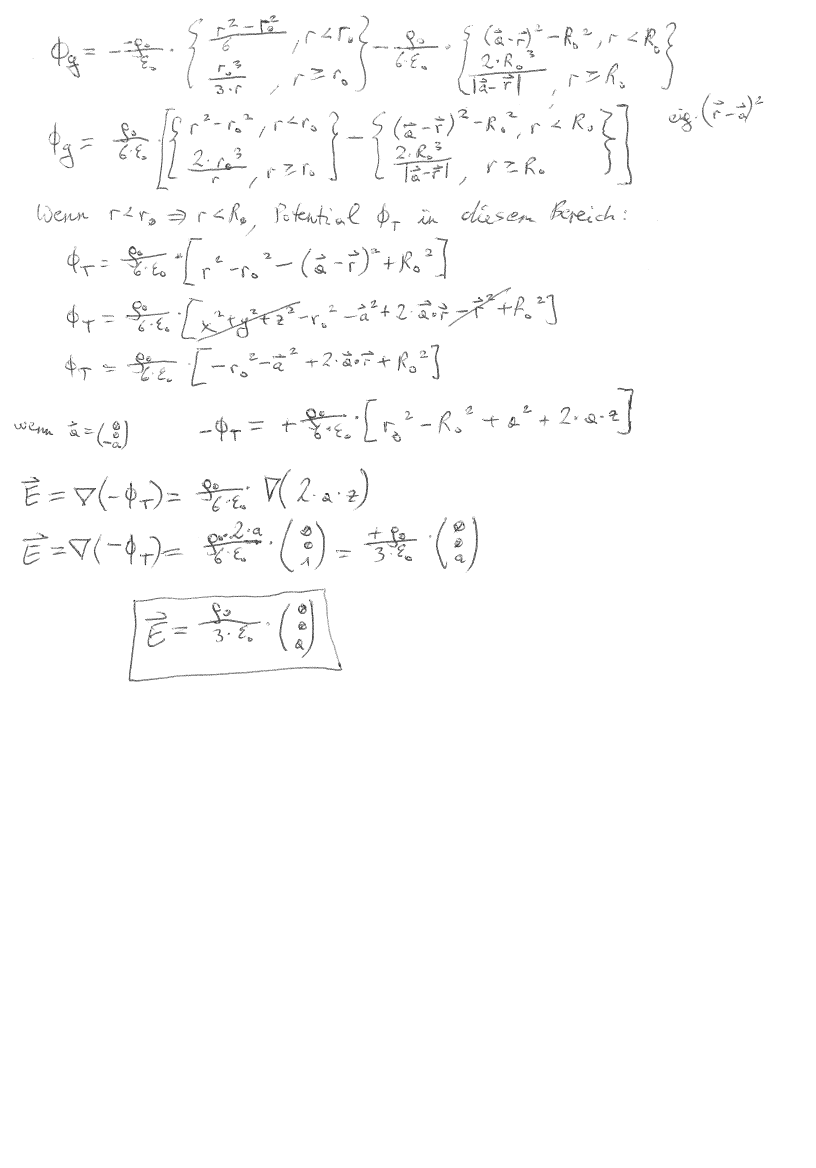 ϕ_g = -\frac{-ρ_0}{ε_0} · { \frac{r^2 - r_0^2}{6}, r < r_0 ; \frac{r_0^3}{3·r}, r ≥ r_0 } - \frac{ρ_0}{6·ε_0} · { (\vec{a} - \vec{r})^2 - R_0^2, r < R_0 ; \frac{2·R_0^3}{|\vec{a} - \vec{r}|}, r ≥ R_0 }
eig. (\vec{r} - \vec{a})^2
ϕ_g = \frac{ρ_0}{6·ε_0} · [ { r^2 - r_0^2, r < r_0 ; \frac{2·r_0^3}{r}, r ≥ r_0 } - { (\vec{a} - \vec{r})^2 - R_0^2, r < R_0 ; \frac{2·R_0^3}{|\vec{a} - \vec{r}|}, r ≥ R_0 } ]
Wenn r < r_0 ⇒ r < R_0, Potential ϕ_T in diesem Bereich:
ϕ_T = \frac{ρ_0}{6·ε_0} · [ r^2 - r_0^2 - (\vec{a} - \vec{r})^2 + R_0^2 ]
ϕ_T = \frac{ρ_0}{6·ε_0} · [ x^2 + y^2 + z^2 - r_0^2 - \vec{a}^2 + 2·\vec{a}∘\vec{r} - \vec{r}^2 + R_0^2 ]
ϕ_T = \frac{ρ_0}{6·ε_0} · [ - r_0^2 - \vec{a}^2 + 2·\vec{a}∘\vec{r} + R_0^2 ]
wenn \vec{a} = (0 0 -a) -ϕ_T = + \frac{ρ_0}{6·ε_0} · [ r_0^2 - R_0^2 + a^2 + 2·a·z ]
\vec{E} = ∇(-ϕ_T) = \frac{ρ_0}{6·ε_0} · ∇(2·a·z)
\vec{E} = ∇(-ϕ_T) = \frac{ρ_0·2·a}{6·ε_0} · (0 0 1) = \frac{+ρ_0}{3·ε_0} · (0 0 a)
\vec{E} = \frac{ρ_0}{3·ε_0} · (0 0 a)